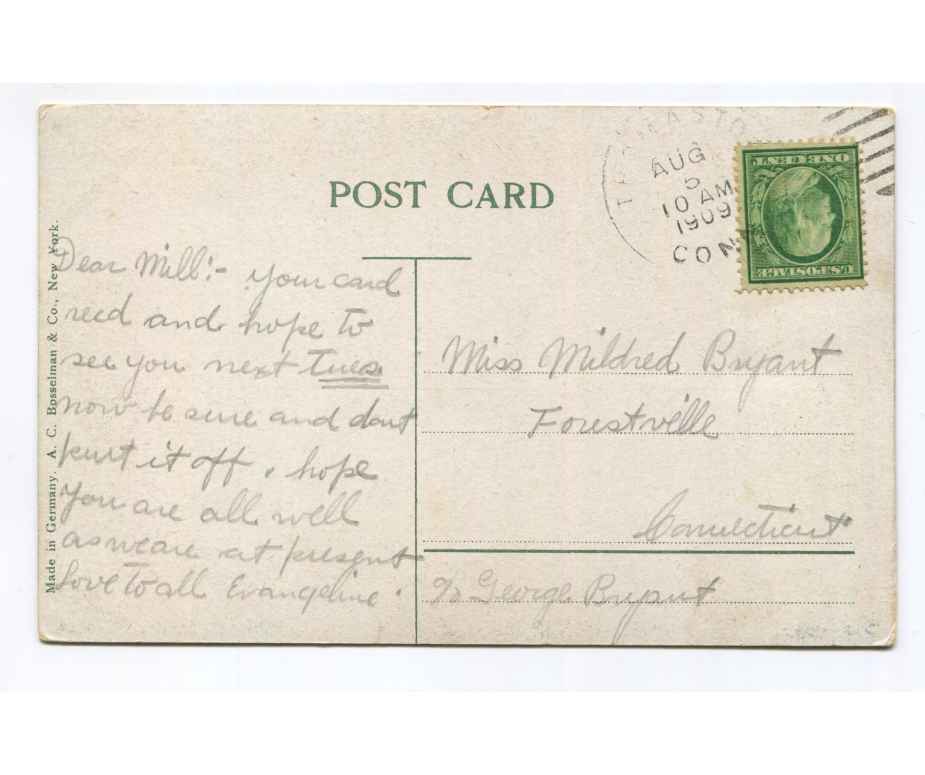 POST CARD
AUG
5
10 AM
1909
CONN
ONE CENT
U.S. POSTAGE
Made in Germany. A. C. Bosselman & Co., New York.
Dear Mill:- your card
recd and hope to
see you next Tues
now be sure and dont
put it off, hope
you are all well
as we are at present
Love to all Evangeline.
Miss Mildred Bryant
Forestville
Connecticut
℅ George Bryant